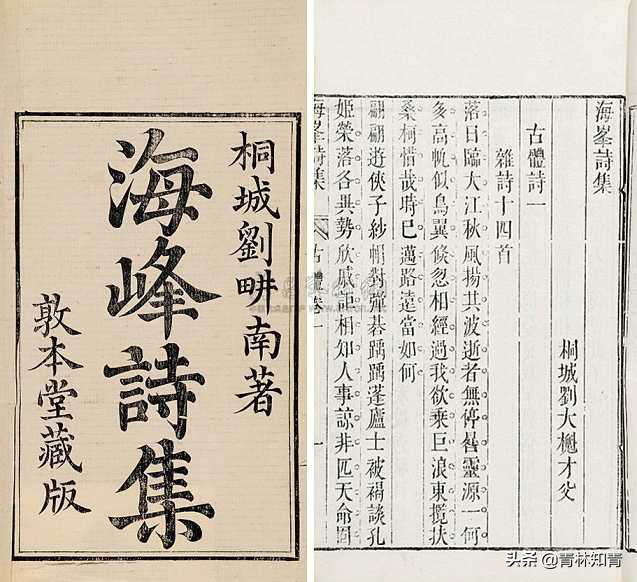 桐城劉畊南著
海峰詩集
敦本堂藏版
海峯詩集
桐城劉大櫆才父
古體詩一
雜詩十四首
落日臨大江秋風揚其波逝者無停晷靈源一何
多高帆似鳥翼倐忽相經過我欲乘巨浪東攬扶
桑柯惜哉時已邁路遠當如何
翩翩遊俠子紗帽對彈棊踽踽蓬廬士被褐談孔
姬榮落各異勢欣戚詎相知人事諒非匹天命固
海峯詩集 古體卷一 一
头条 @青林知青